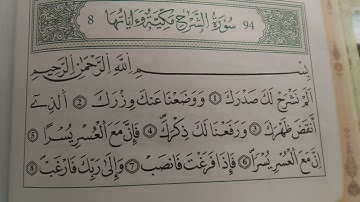 94 سُورَةُ الشَّرْحِ مَكِّيَّةٌ وَءَايَاتُهَا 8
بِسْمِ اللَّهِ الرَّحْمَٰنِ الرَّحِيمِ
أَلَمْ نَشْرَحْ لَكَ صَدْرَكَ 1 وَوَضَعْنَا عَنكَ وِزْرَكَ 2 الَّذِے
أَنقَضَ ظَهْرَكَ 3 وَرَفَعْنَا لَكَ ذِكْرَكَ 4 فَإِنَّ مَعَ الْعُسْرِ يُسْراً 5
اِنَّ مَعَ الْعُسْرِ يُسْراً 6 فَإِذَا فَرَغْتَ فَانصَبْ 7 وَإِلَىٰ رَبِّكَ فَارْغَب 8